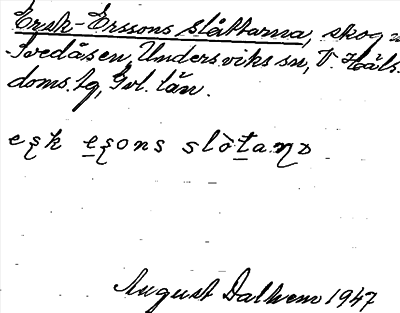 Ersk-Erssons slåttarna, skog =
Svedåsen, Undersviks sn, V. Häls.
doms. lg, Gvl. län.
August Dalhem 1947